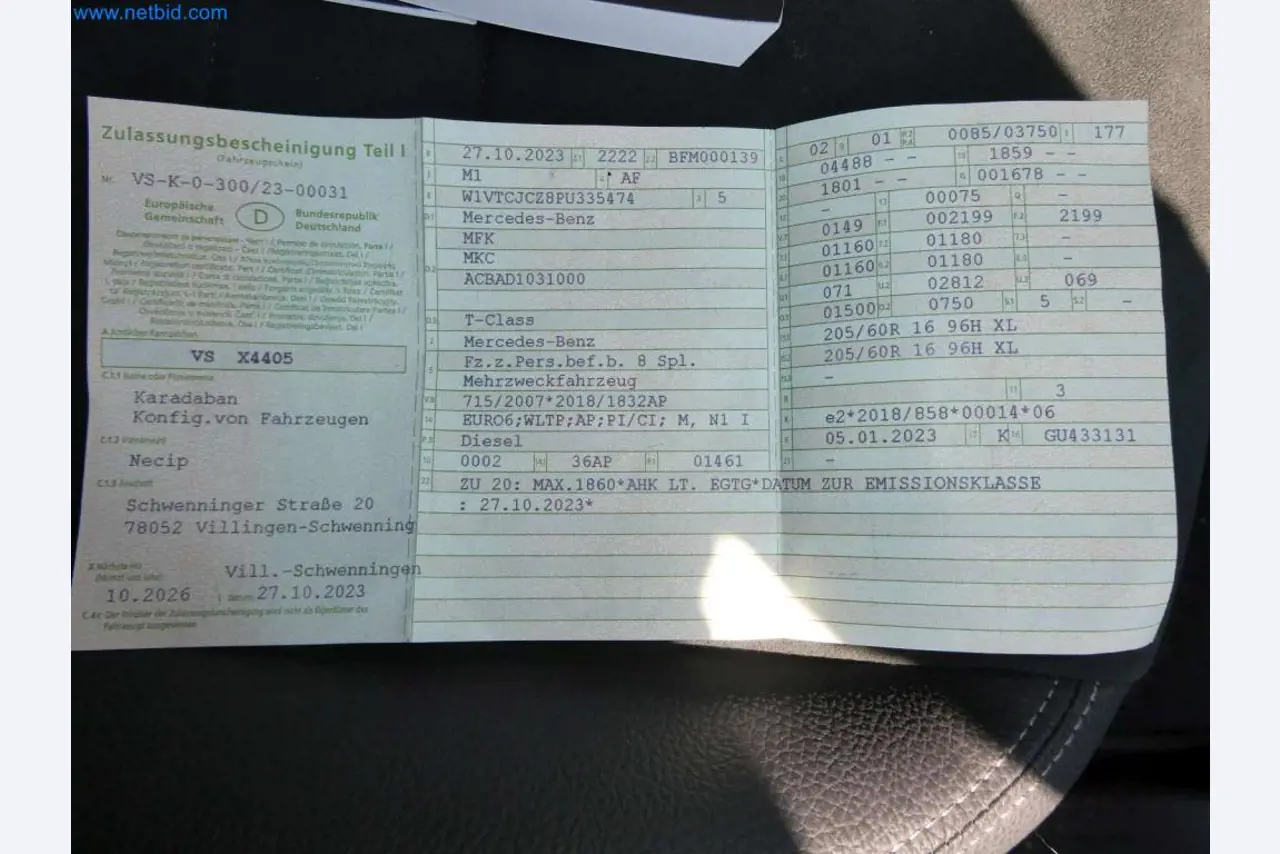 www.netbid.com
Zulassungsbescheinigung Teil I
(Fahrzeugschein)
Nr. VS-K-0-300/23-00031
Europäische Gemeinschaft
D
Bundesrepublik Deutschland
VS X4405
C.1.1 Name oder Firmenname
Karadaban
Konfig.von Fahrzeugen
Necip
C.1.3 Anschrift
Schwenninger Straße 20
78052 Villingen-Schwenning
Vill.-Schwenningen
10.2026
27.10.2023
27.10.2023 2222 BFM000139
M1 AF
W1VTCJCZ8PU335474 5
Mercedes-Benz
MFK
MKC
ACBAD1031000
T-Class
Mercedes-Benz
Fz.z.Pers.bef.b. 8 Spl.
Mehrzweckfahrzeug
715/2007*2018/1832AP
EURO6;WLTP;AP;PI/CI; M, N1 I
Diesel
0002 36AP 01461
ZU 20: MAX.1860*AHK LT. EGTG*DATUM ZUR EMISSIONSKLASSE
: 27.10.2023*
02 01 0085/03750 177
04488 - - 1859 - -
1801 - - 001678 - -
- 00075 -
0149 002199 2199
01160 01180 -
01160 01180 -
071 02812 069
01500 0750 5 -
205/60R 16 96H XL
205/60R 16 96H XL
-
3
e2*2018/858*00014*06
05.01.2023 K GU433131
-